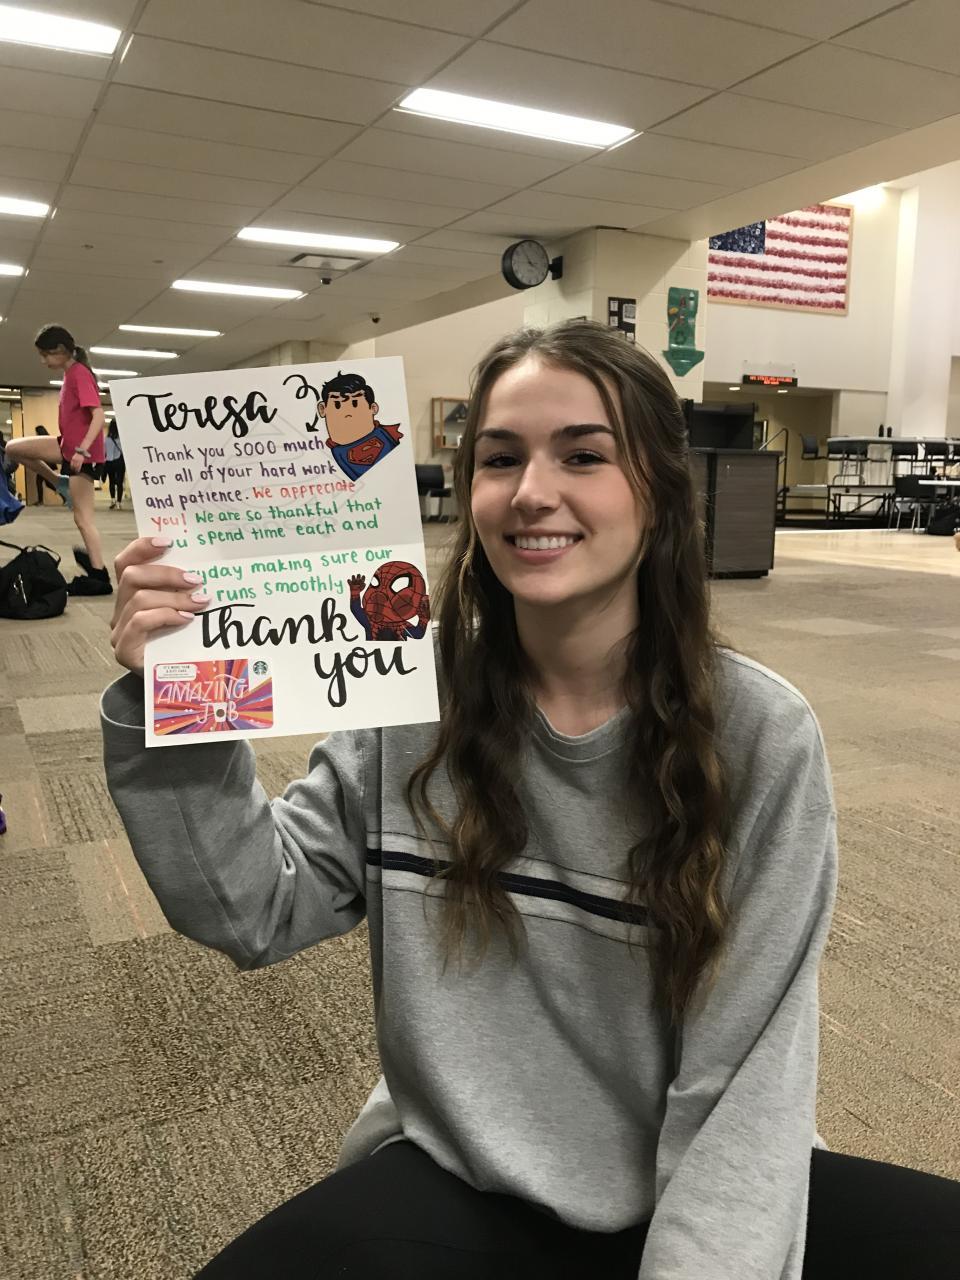 Teresa
Thank you SOOO much
for all of your hard work
and patience. We appreciate
you! We are so thankful that
u spend time each and
ryday making sure our
runs smoothly
Thank
you
AMAZING
JOB